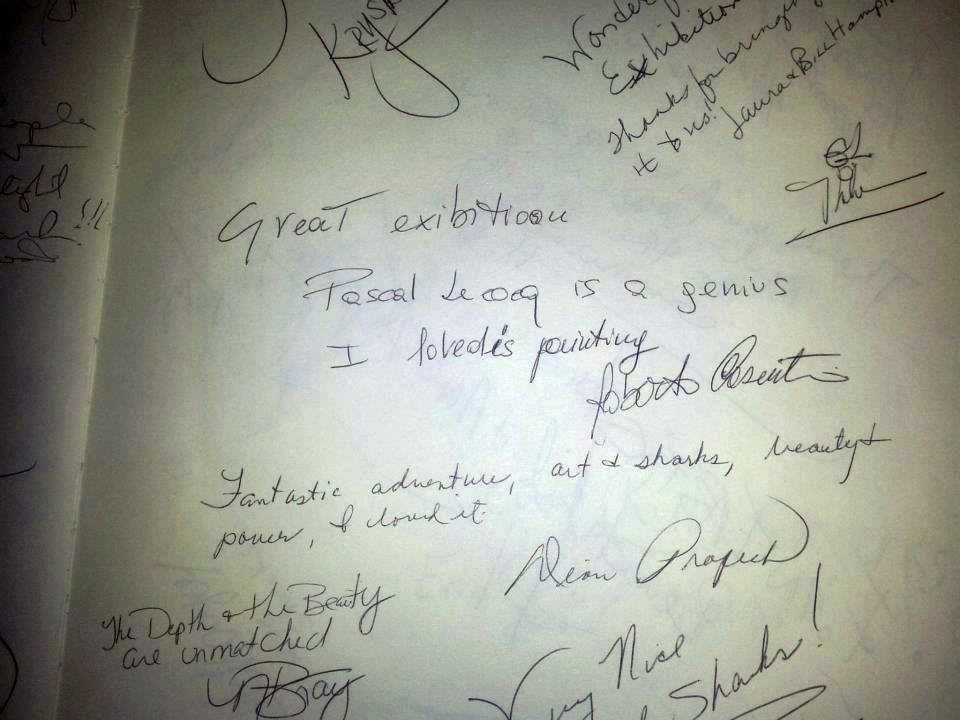 Krys
Wonder
Exhibition
Thanks for bringing
it to us!
Laura & Bill Hamp
Great exibitioon
Pascal Lecocq is a genius
I lovedis painting
Roberto Cosentini
Fantastic adventure, art & sharks, beauty &
power, I loved it.
The Depth & the Beauty
are unmatched
Very Nice
Sharks!